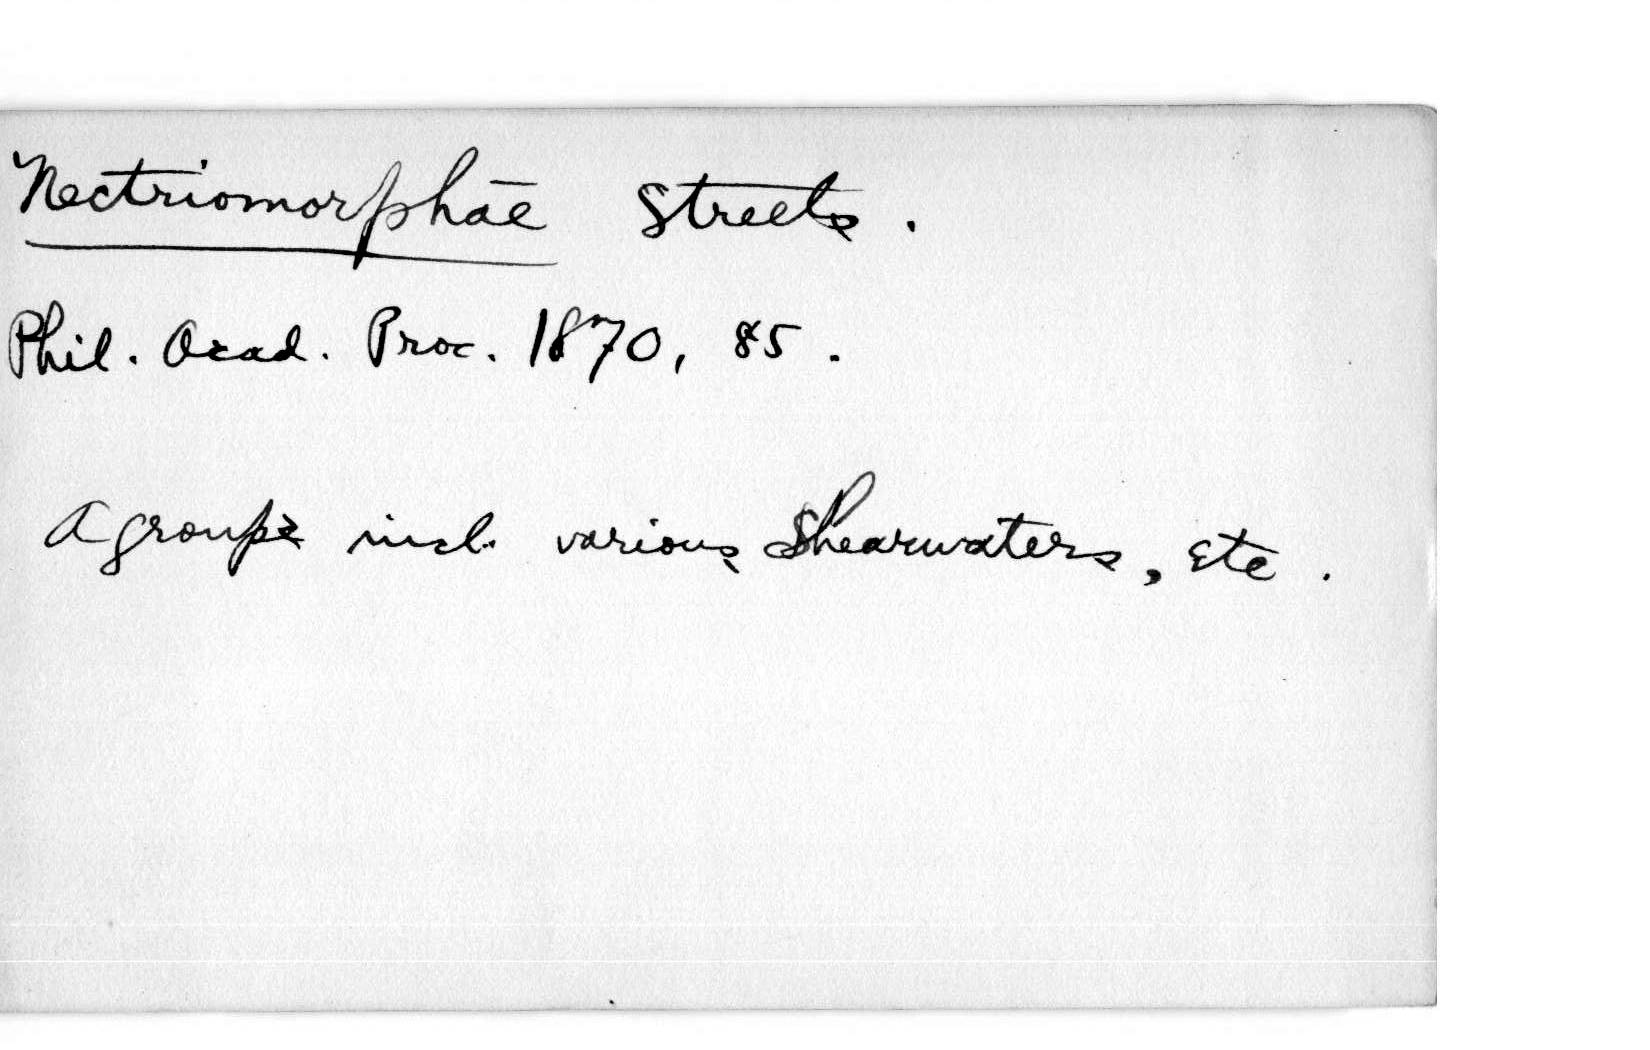 Nectriomorphae Streets.
Phil. Acad. Proc. 1870, 85.
A group incl. various Shearwaters, etc.